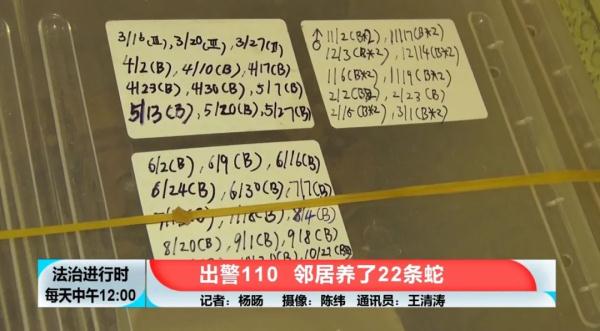 3/16(Ⅲ), 3/20(Ⅲ), 3/27(Ⅱ)
4/2(B), 4/10(B), 4/17(B)
4/23(B), 4/30(B), 5/7(B)
5/13(B), 5/20(B), 5/27(B)
♂ 11/2(B*2), 11/17(B*2)
12/3(B*2), 12/14(B*2)
1/6(B*2), 1/19(B*2)
2/2(B*2), 2/23(B)
2/15(B*2), 3/1(B*2)
6/2(B), 6/9(B), 6/16(B)
6/24(B), 6/30(B), 7/7(B)
8/4(B)
8/20(B), 9/1(B), 9/8(B)
10/27
法治进行时
每天中午12:00
出警110 邻居养了22条蛇
记者：杨旸 摄像：陈纬 通讯员：王清涛